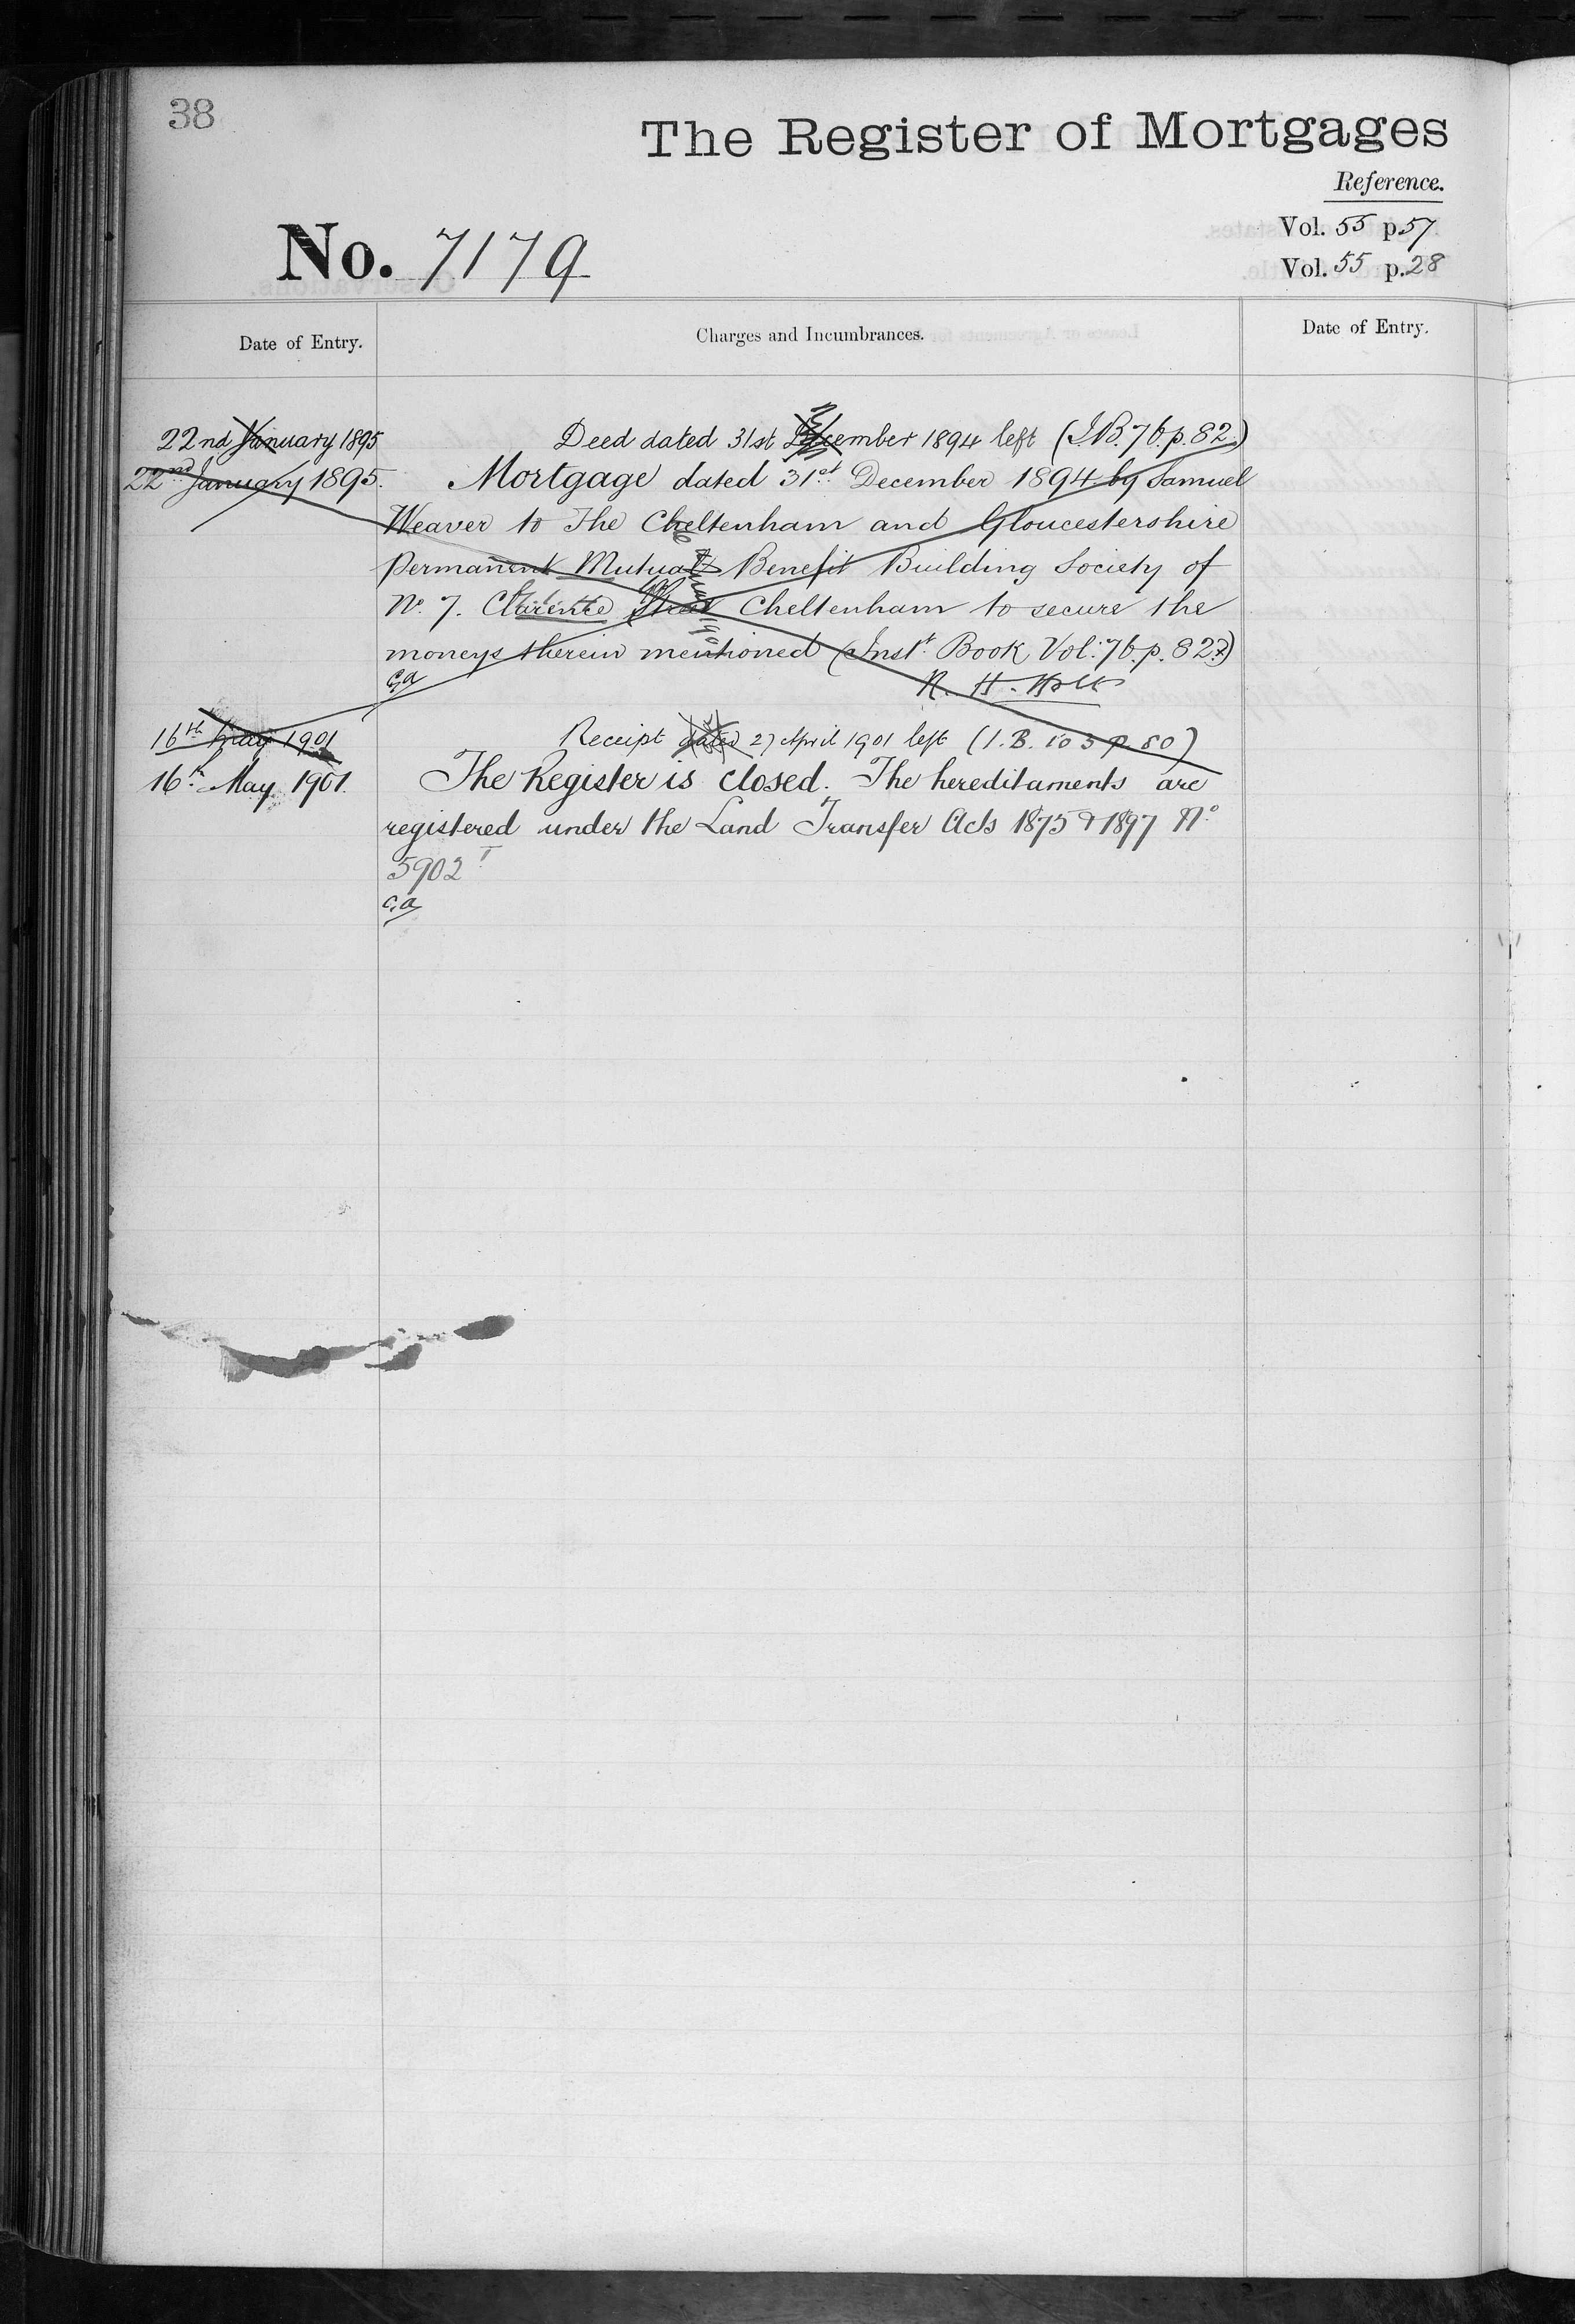 38
The Register of Mortgages
Reference.
Vol. 55 p. 57
No. 7179
Vol. 55 p. 28
Date of Entry.
Charges and Incumbrances.
Date of Entry.
22nd January 1895 Deed dated 31st December 1894 left (I.B. 76. p. 82.)
22nd January 1895. Mortgage dated 31st December 1894 by Samuel
Weaver to The Cheltenham and Gloucestershire
Permanent Mutual Benefit Building Society of
No. 7. Clarence Street Cheltenham to secure the
moneys therein mentioned (Instt. Book Vol: 76. p. 82.)
R. H. Holt
16th May 1901 Receipt dated 27 April 1901 left (I.B. 103 p. 80)
16th May 1901. The Register is closed. The hereditaments are
registered under the Land Transfer Acts 1875 & 1897 No.
5902
C.A